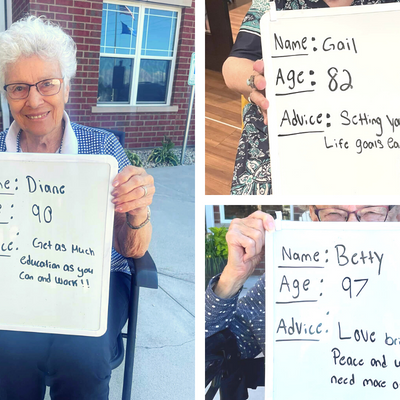 me: Diane
e: 90
ce: Get as Much
education as you
can and work!!
Name: Gail
Age: 82
Advice: Setting
Life goals
Name: Betty
Age: 97
Advice: Love
Peace and
need more